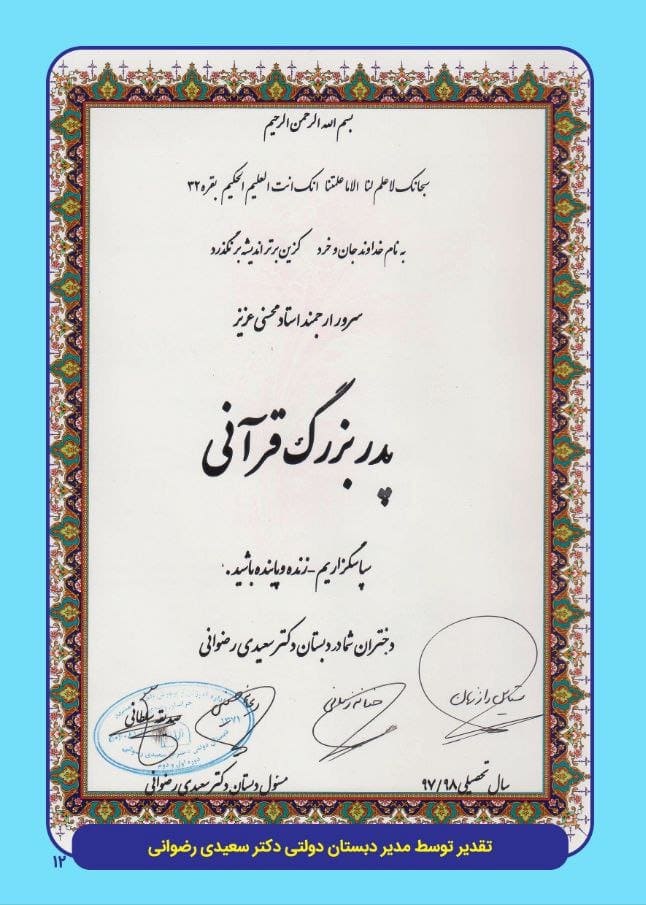 بسم الله الرحمن الرحیم
سبحانک لا علم لنا الا ما علمتنا انک انت العلیم الحکیم بقره ۳۲
به نام خداوند جان و خرد کزین برتر اندیشه برنگذرد
سرور ارجمند استاد محسنی عزیز
پدربزرگ قرآنی
سپاسگزاریم - زنده و پاینده باشید.
دختران شما در دبستان دکتر سعیدی رضوانی
صدیقه سلطانی
سال تحصیلی ۹۷/۹۸
مسئول دبستان دکتر سعیدی رضوانی
تقدیر توسط مدیر دبستان دولتی دکتر سعیدی رضوانی
۱۲